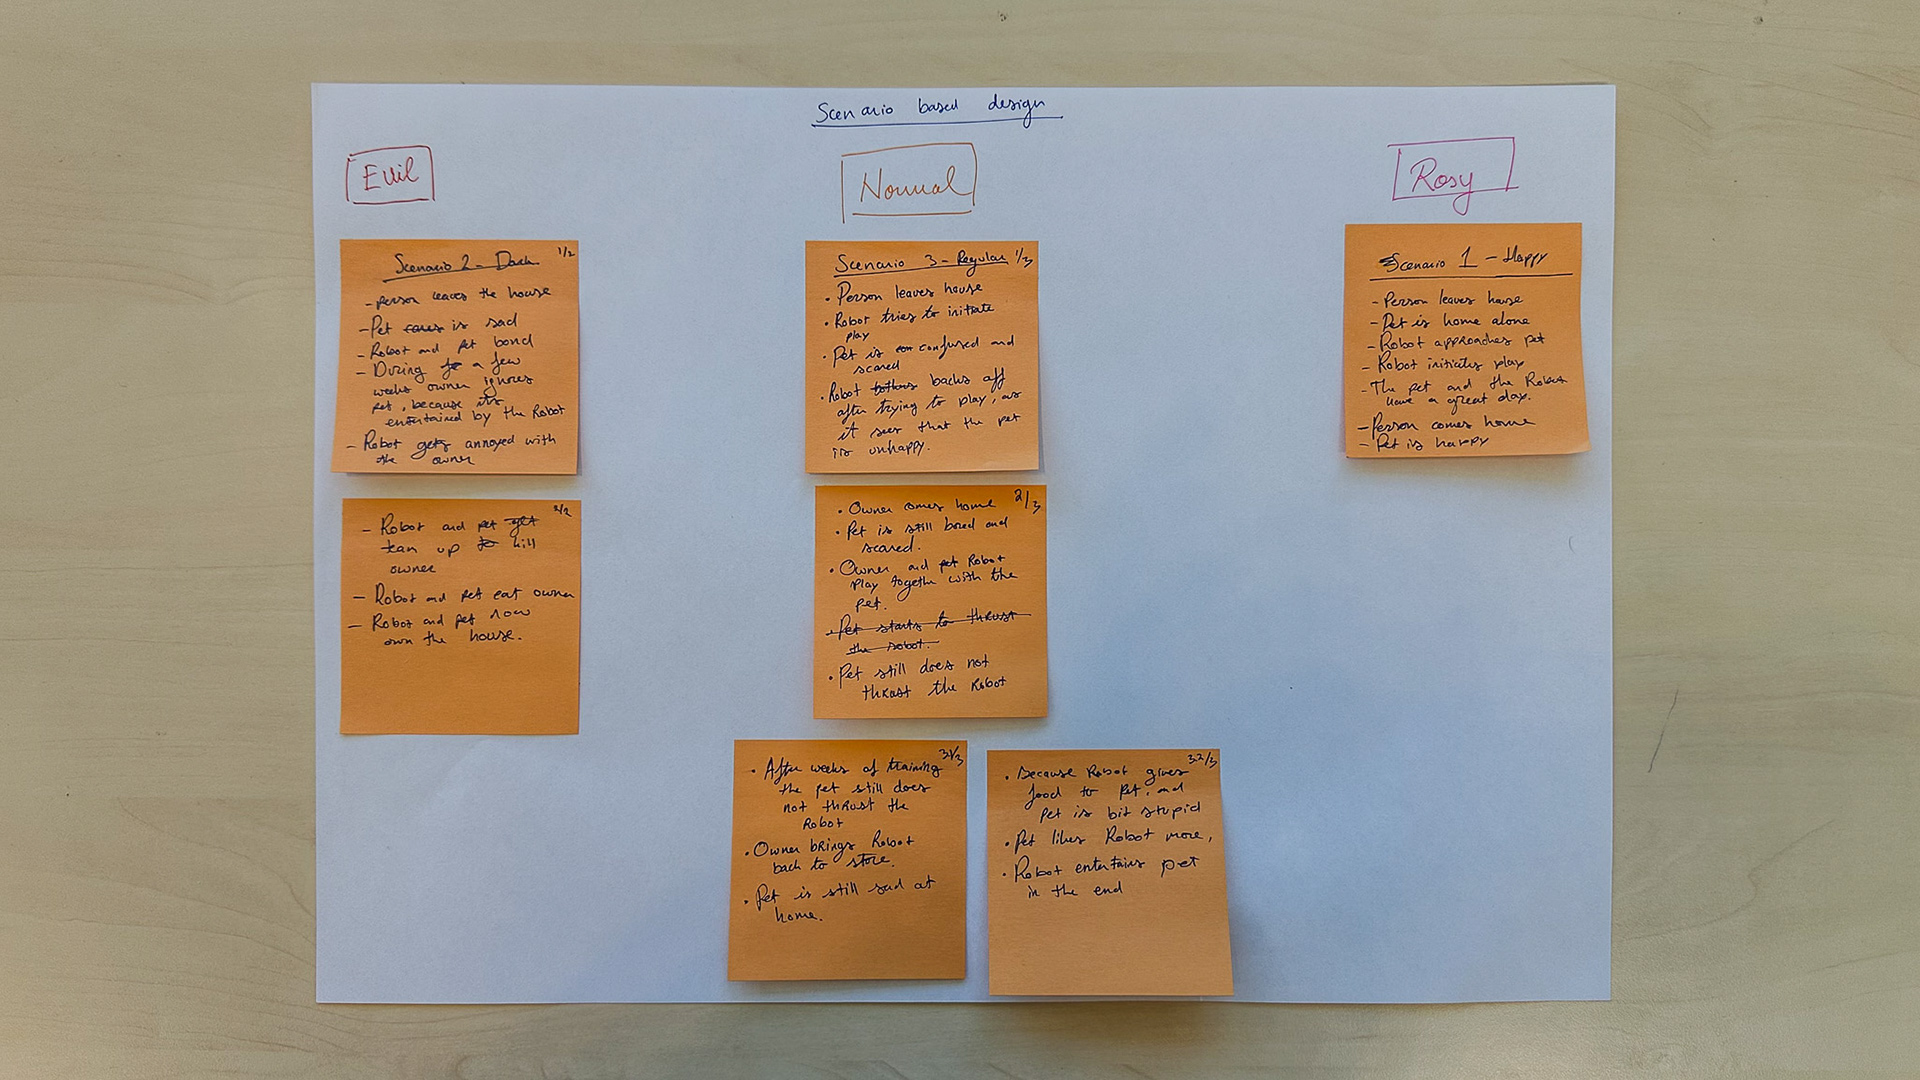 Scenario based design
Evil
Scenario 2 - Dark 1/2
- person leaves the house
- Pet is sad
- Robot and pet bond
- During a few
weeks owner ignores
pet, because its
entertained by the Robot
- Robot gets annoyed with
the owner
2/2
- Robot and pet get
team up to kill
owner
- Robot and pet eat owner
- Robot and pet now
own the house.
Normal
Scenario 3 - Regular 1/3
• Person leaves house
• Robot tries to initiate
play
• Pet is confused and
scared
• Robot backs off
after trying to play, as
it sees that the pet
is unhappy.
2/3
• Owner comes home
• Pet is still bored and
scared.
• Owner and pet Robot
play together with the
pet.
• Pet starts to thrust
the robot.
• Pet still does not
thrust the Robot
3.1/3
• After weeks of training
the pet still does
not thrust the
Robot
• Owner brings Robot
back to store.
• Pet is still sad at
home.
3.2/3
• Because Robot gives
food to pet, and
pet is bit stupid
• Pet likes Robot more,
• Robot entertains pet
in the end
Rosy
Scenario 1 - Happy
- Person leaves house
- Pet is home alone
- Robot approaches pet
- Robot initiates play
- The pet and the Robot
have a great day.
- Person comes home
- Pet is happy